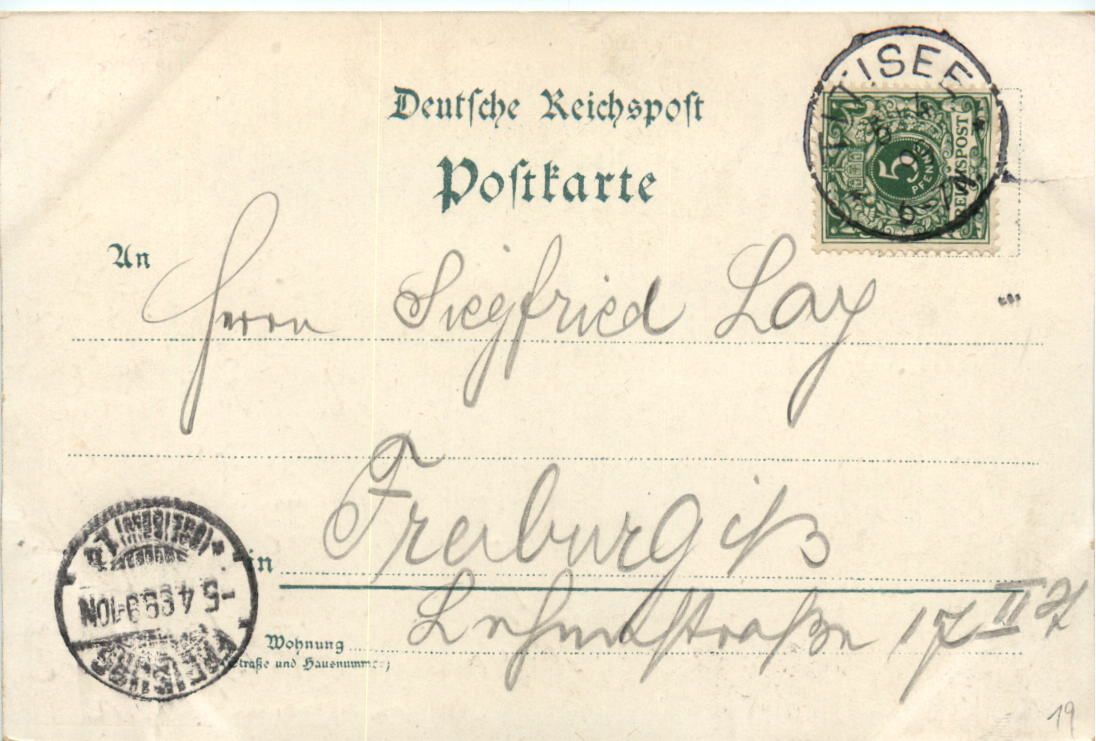 Deutsche Reichspost
Postkarte
TITISEE
6-7N
REICHSPOST
5
PFENNIG
An
Herrn Siegfried Lay
Freiburg i/B
in
Lehenstraße 17 II
Wohnung
(Straße und Hausnummer)
-5.4.99.9-10N
FREIBURG
19